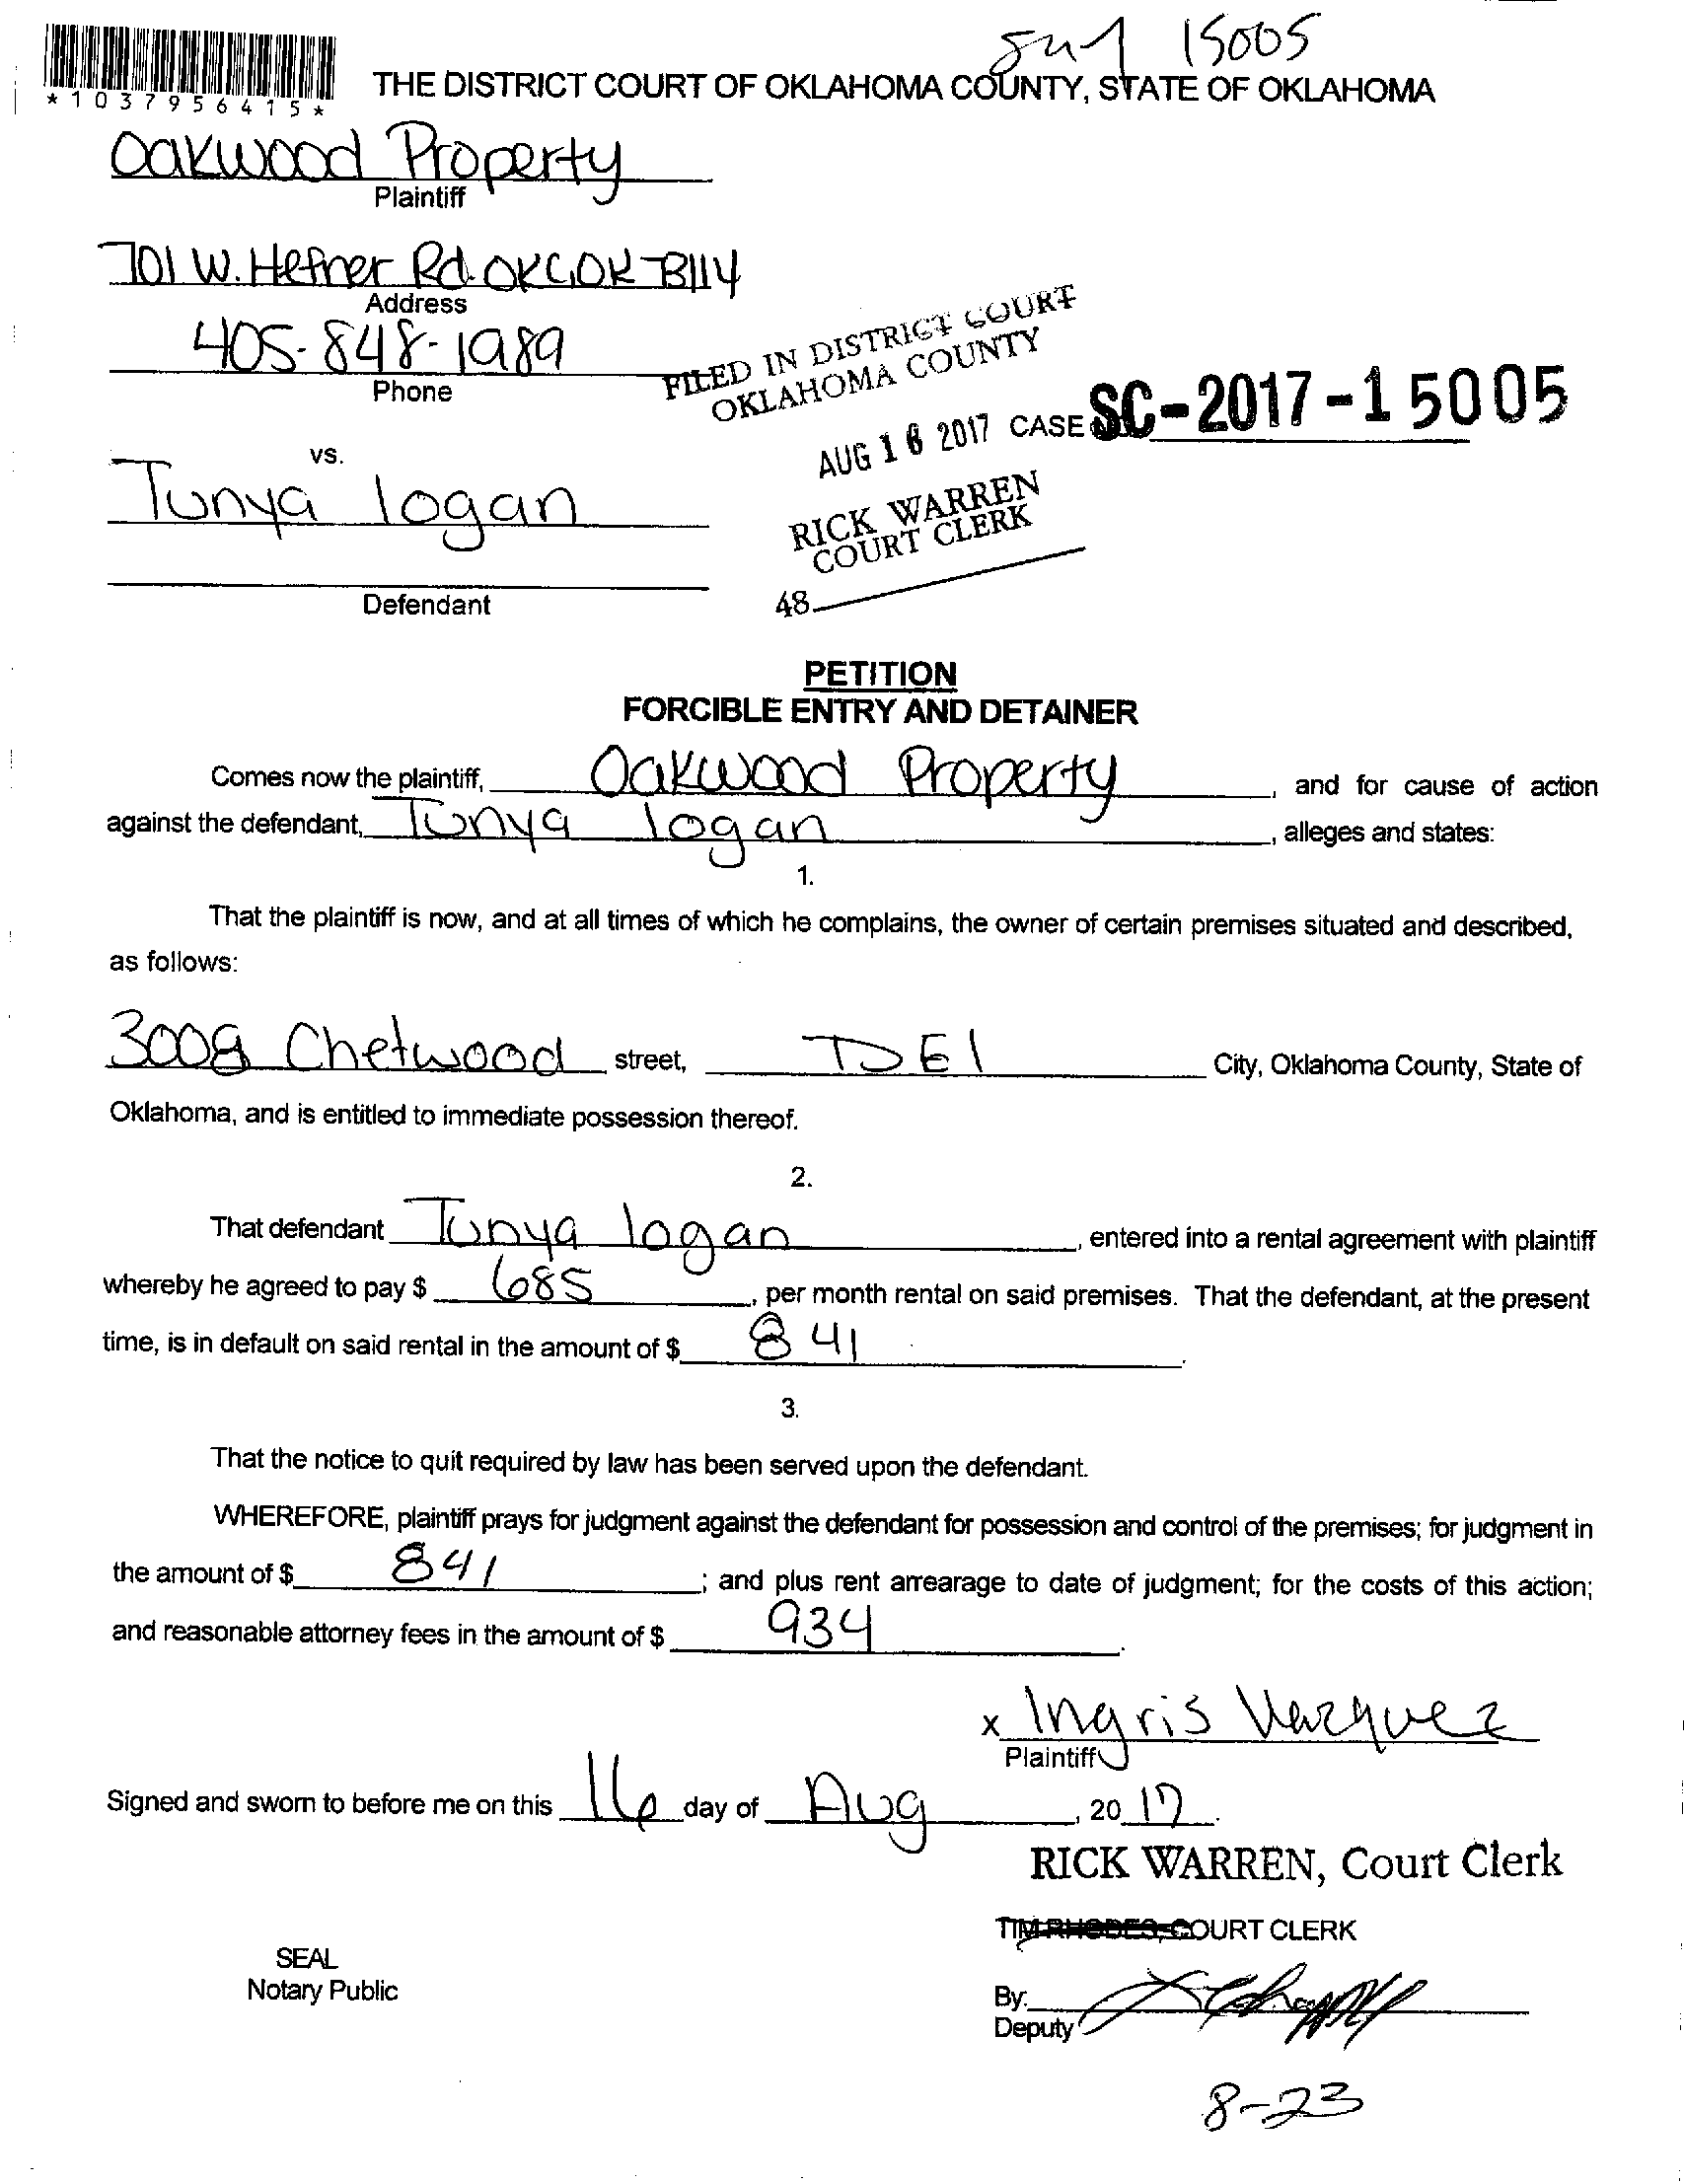 15005
*1037956415*
THE DISTRICT COURT OF OKLAHOMA COUNTY, STATE OF OKLAHOMA
Oakwood Property
Plaintiff
701 W. Hefner Rd. OKC, OK 73114
Address
405-848-1989
Phone
FILED IN DISTRICT COURT
OKLAHOMA COUNTY
AUG 16 2017 CASE SC-2017-15005
vs.
Tunya logan
RICK WARREN
COURT CLERK
48
Defendant
PETITION
FORCIBLE ENTRY AND DETAINER
Comes now the plaintiff, Oakwood Property, and for cause of action
against the defendant, Tunya logan, alleges and states:
1.
That the plaintiff is now, and at all times of which he complains, the owner of certain premises situated and described,
as follows:
3008 Chetwood street, City, Oklahoma County, State of
Oklahoma, and is entitled to immediate possession thereof.
2.
That defendant Tunya logan, entered into a rental agreement with plaintiff
whereby he agreed to pay $ 685, per month rental on said premises. That the defendant, at the present
time, is in default on said rental in the amount of $ 841.
3.
That the notice to quit required by law has been served upon the defendant.
WHEREFORE, plaintiff prays for judgment against the defendant for possession and control of the premises; for judgment in
the amount of $ 841; and plus rent arrearage to date of judgment; for the costs of this action;
and reasonable attorney fees in the amount of $ 934.
x Ingris Vazquez
Plaintiff
Signed and sworn to before me on this 16 day of Aug, 20 17.
RICK WARREN, Court Clerk
TIM RHODES, COURT CLERK
SEAL
Notary Public
By:
Deputy
8-23